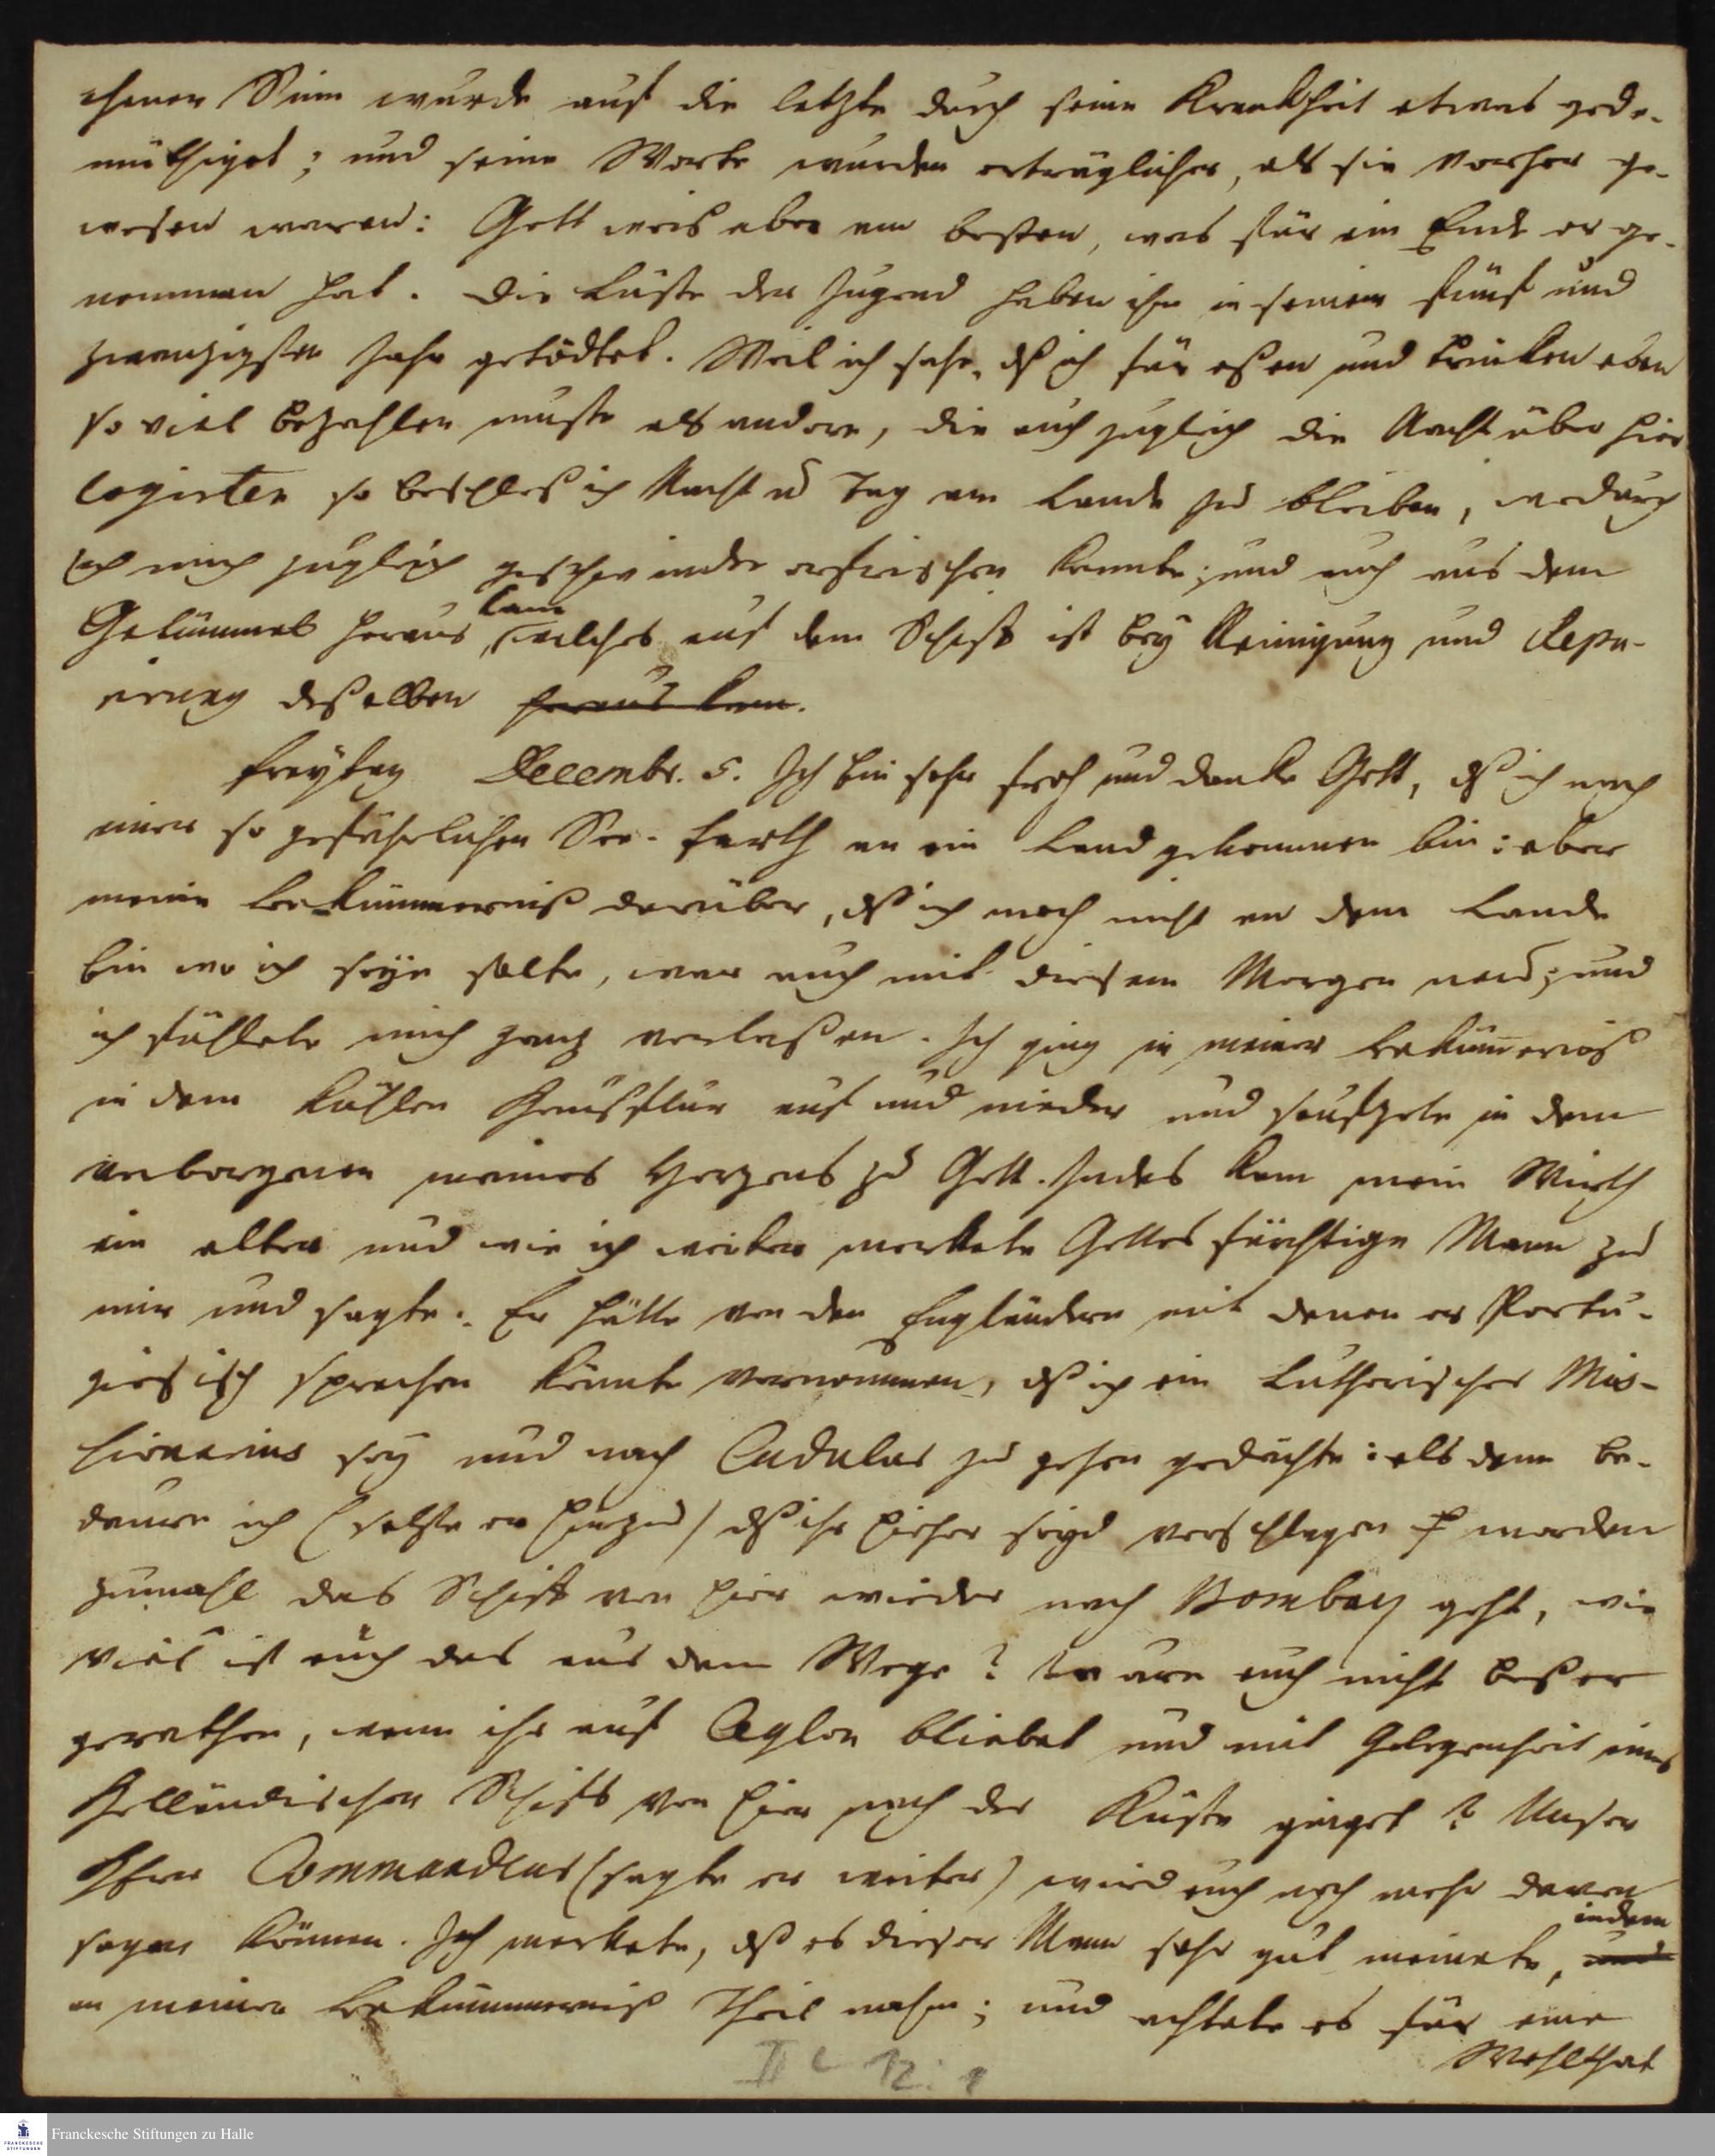 chener Sinn wurde auf die letzte durch seine Krankheit etwas gede-
müthiget; und seine Worte wurden erträglicher, als sie vorher ge-
wesen waren: Gott weis aber am besten, was für ein Ende er ge-
nommen hat. Die Lüste der Jugend haben ihn in seinem fünf und
zwanzigsten Jahr getödtet. Weil ich sahe, dß ich für eßen und trinken eben
so viel bezahlen muste als andere, die auch zugleich die Nacht über hier
logirten so beschloß ich Nacht u Tag am Lande zu bleiben, wodurch
ich mich zugleich geschwinder erfrischen konnte; und auch aus dem
Getümmel heraus kam, welches auf dem Schiff ist bey Reinigung und Repa-
rirung deßelben heraus kam.
Freytag Decembr. 5. Ich bin sehr froh und danke Gott, dß ich nach
einer so gefährlichen See-farth an ein Land gekommen bin: aber
meine Bekümmerniß darüber, dß ich noch nicht an dem Lande
bin wo ich seyn solte, war auch mit diesem Morgen neu; und
ich fühlete mich ganz verlaßen. Ich ging in meiner Bekümerniß
in dem kühlen Hausflur auf und nieder und seufzete in dem
verborgenen meines Herzens zu Gott. Indes kam mein Wirth
ein alter und wie ich weiter merkete Gottesfürchtige Mann zu
mir und sagte: Er hätte von den Engländern mit denen er Portu-
giesisch sprechen könnte vernommen, dß ich ein Lutherischer Mis-
sionarius sey und nach Cudulur zu gehen gedächte: als denn be-
daure ich (setzte er hinzu) dß ihr hieher seyd verschlagen worden
zumahl das Schiff von hier wieder nach Bombay geht, wie
viel ist euch das aus dem Wege? wäre euch nicht beßer
gerathen, wenn ihr auf Ceylon bliebet und mit Gelegenheit eines
Holländischen Schiffs von hier nach der Küste ginget? Unser
Herr Commandeur (sagte er weiter) wird euch noch mehr davon
sagen können. Ich merkete, dß es dieser Mann sehr gut meinete, und indem
an meiner Bekümmerniß Theil nahm; und achtete es für eine
Wohlthat
II c 12:1
Franckesche Stiftungen zu Halle